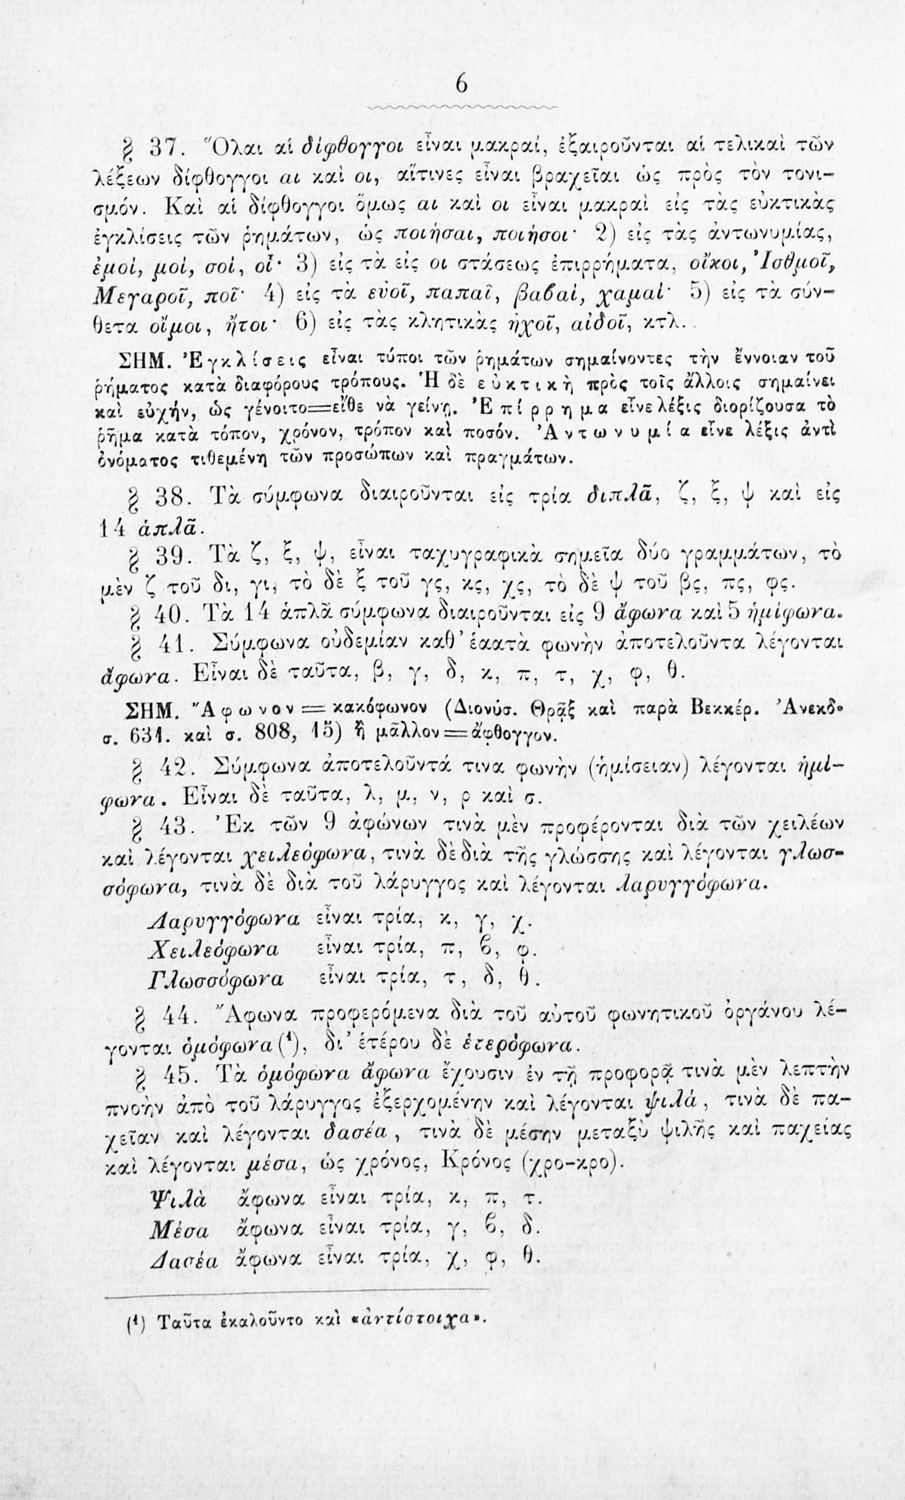 6
§ 37. Ὅλαι αἱ δίφθογγοι εἶναι μακραί, ἐξαιροῦνται αἱ τελικαὶ τῶν
λέξεων δίφθογγοι αι καὶ οι, αἵτινες εἶναι βραχεῖαι ὡς πρὸς τὸν τονι-
σμόν. Καὶ αἱ δίφθογγοι ὅμως αι καὶ οι εἶναι μακραὶ εἰς τὰς εὐκτικὰς
ἐγκλίσεις τῶν ῥημάτων, ὡς ποιήσαι, ποιήσοι· 2) εἰς τὰς ἀντωνυμίας,
ἐμοί, μοί, σοί, οἷ· 3) εἰς τὰ εἰς οι στάσεως ἐπιρρήματα, οἴκοι, Ἰσθμοῖ,
Μεγαροῖ, ποῖ· 4) εἰς τὰ εὐοῖ, παπαῖ, βαβαί, χαμαί· 5) εἰς τὰ σύν-
θετα οἴμοι, ἤτοι· 6) εἰς τὰς κλητικὰς ἠχοῖ, αἰδοῖ, κτλ.
ΣΗΜ. Ἐγκλίσεις εἶναι τύποι τῶν ῥημάτων σημαίνοντες τὴν ἔννοιαν τοῦ
ῥήματος κατὰ διαφόρους τρόπους. Ἡ δὲ εὐκτικὴ πρὸς τοῖς ἄλλοις σημαίνει
καὶ εὐχήν, ὡς γένοιτο=εἴθε νὰ γείνῃ. Ἐπίρρημα εἶνε λέξις διορίζουσα τὸ
ῥῆμα κατὰ τόπον, χρόνον, τρόπον καὶ ποσόν. Ἀντωνυμία εἶνε λέξις ἀντὶ
ὀνόματος τιθεμένη τῶν προσώπων καὶ πραγμάτων.
§ 38. Τὰ σύμφωνα διαιροῦνται εἰς τρία διπλᾶ, ζ, ξ, ψ καὶ εἰς
14 ἁπλᾶ.
§ 39. Τὰ ζ, ξ, ψ, εἶναι ταχυγραφικὰ σημεῖα δύο γραμμάτων, τὸ
μὲν ζ τοῦ δι, γι, τὸ δὲ ξ τοῦ γς, κς, χς, τὸ δὲ ψ τοῦ βς, πς, φς.
§ 40. Τὰ 14 ἁπλᾶ σύμφωνα διαιροῦνται εἰς 9 ἄφωνα καὶ 5 ἡμίφωνα.
§ 41. Σύμφωνα οὐδεμίαν καθ' ἑαατὰ φωνὴν ἀποτελοῦντα λέγονται
ἄφωνα. Εἶναι δὲ ταῦτα, β, γ, δ, κ, π, τ, χ, φ, θ.
ΣΗΜ. Ἄφωνον = κακόφωνον (Διονύσ. Θρᾷξ καὶ παρὰ Βεκκέρ. Ἀνεκδ.
σ. 631. καὶ σ. 808, 15) ἢ μᾶλλον=ἄφθογγον.
§ 42. Σύμφωνα ἀποτελοῦντά τινα φωνὴν (ἡμίσειαν) λέγονται ἡμί-
φωνα. Εἶναι δὲ ταῦτα, λ, μ, ν, ρ καὶ σ.
§ 43. Ἐκ τῶν 9 ἀφώνων τινὰ μὲν προφέρονται διὰ τῶν χειλέων
καὶ λέγονται χειλεόφωνα, τινὰ δὲ διὰ τῆς γλώσσης καὶ λέγονται γλωσ-
σόφωνα, τινὰ δὲ διὰ τοῦ λάρυγγος καὶ λέγονται λαρυγγόφωνα.
Λαρυγγόφωνα εἶναι τρία, κ, γ, χ.
Χειλεόφωνα εἶναι τρία, π, ϐ, φ.
Γλωσσόφωνα εἶναι τρία, τ, δ, θ.
§ 44. Ἄφωνα προφερόμενα διὰ τοῦ αὐτοῦ φωνητικοῦ ὀργάνου λέ-
γονται ὁμόφωνα (¹), δι' ἑτέρου δὲ ἑτερόφωνα.
§ 45. Τὰ ὁμόφωνα ἄφωνα ἔχουσιν ἐν τῇ προφορᾷ τινὰ μὲν λεπτὴν
πνοὴν ἀπὸ τοῦ λάρυγγος ἐξερχομένην καὶ λέγονται ψιλά, τινὰ δὲ πα-
χεῖαν καὶ λέγονται δασέα, τινὰ δὲ μέσην μεταξὺ ψιλῆς καὶ παχείας
καὶ λέγονται μέσα, ὡς χρόνος, Κρόνος (χρο-κρο).
Ψιλὰ ἄφωνα εἶναι τρία, κ, π, τ.
Μέσα ἄφωνα εἶναι τρία, γ, ϐ, δ.
Δασέα ἄφωνα εἶναι τρία, χ, φ, θ.
(¹) Ταῦτα ἐκαλοῦντο καὶ «ἀντίστοιχα».